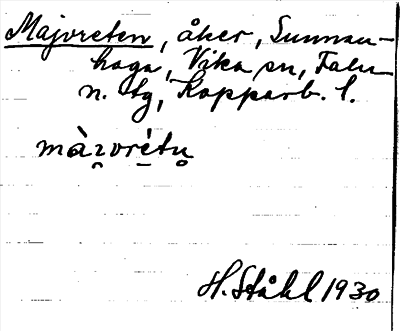 Majoreten, åker, Sunnan-
haga, Vika sn, Falu
n. tg, Kopparb. l.
H. Ståhl 1930